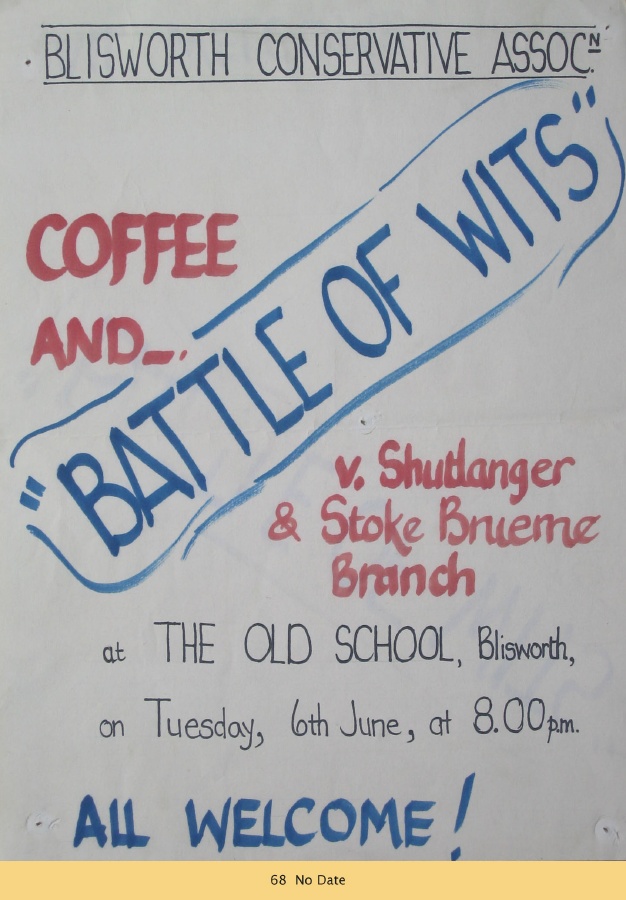 BLISWORTH CONSERVATIVE ASSOCN.
COFFEE
AND...
"BATTLE OF WITS"
v. Shutlanger
& Stoke Bruerne
Branch
at THE OLD SCHOOL, Blisworth,
on Tuesday, 6th June, at 8.00p.m.
ALL WELCOME!
68 No Date